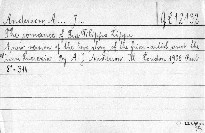 Anderson A... J...
The romance of Fra Filippo Lippi
A new version of the love story of the friar-artist and the
By A J Anderson London 1909
8°